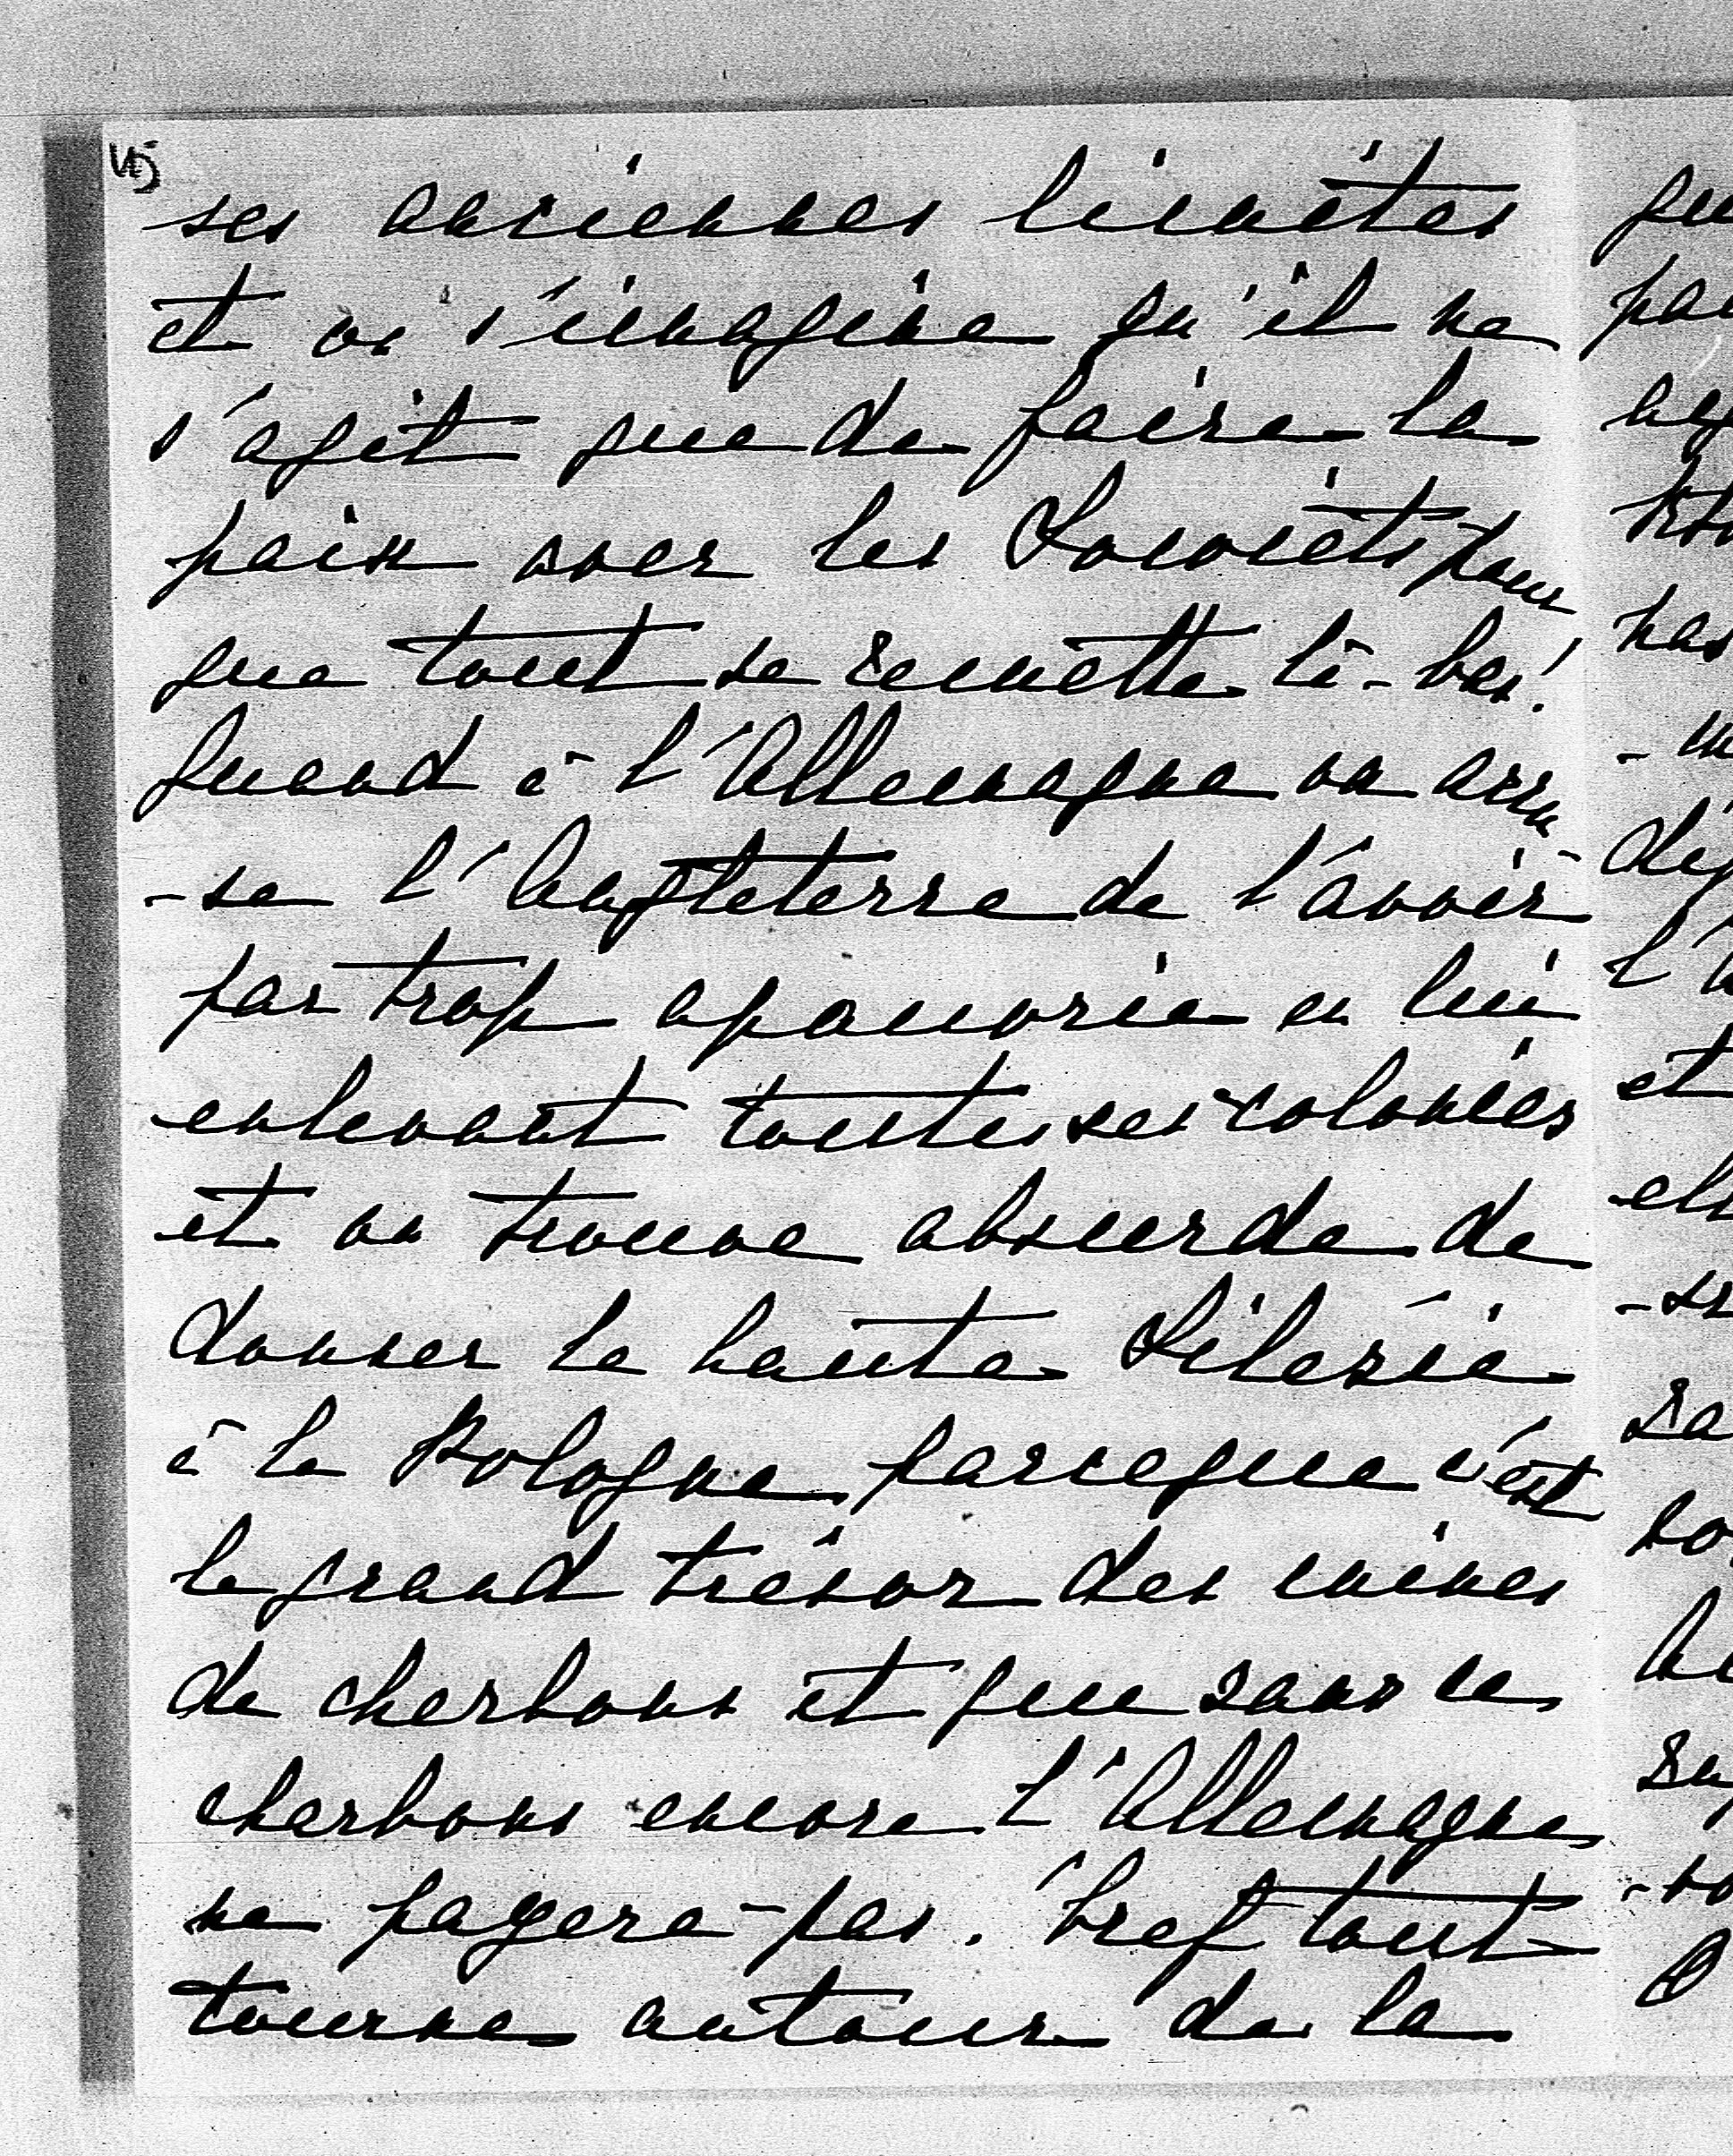 ses anciennes limites
et on s'imagine qu'il ne
s'agit que de faire la
paix avec les Soviets pour
que tout se remette là-bas!
Quand à l'Allemagne on accu
-se l'Angleterre de l'avoir
par trop apauvrie en lui
enlevant toutes ses colonies
et on trouve absurde de
donner la haute Silésie
à la Pologne parceque c'est
le grand trésor des mines
de charbons et que sans ce
charbons encore l'Allemagne
ne payera-pas. bref tout
tourne autour de la